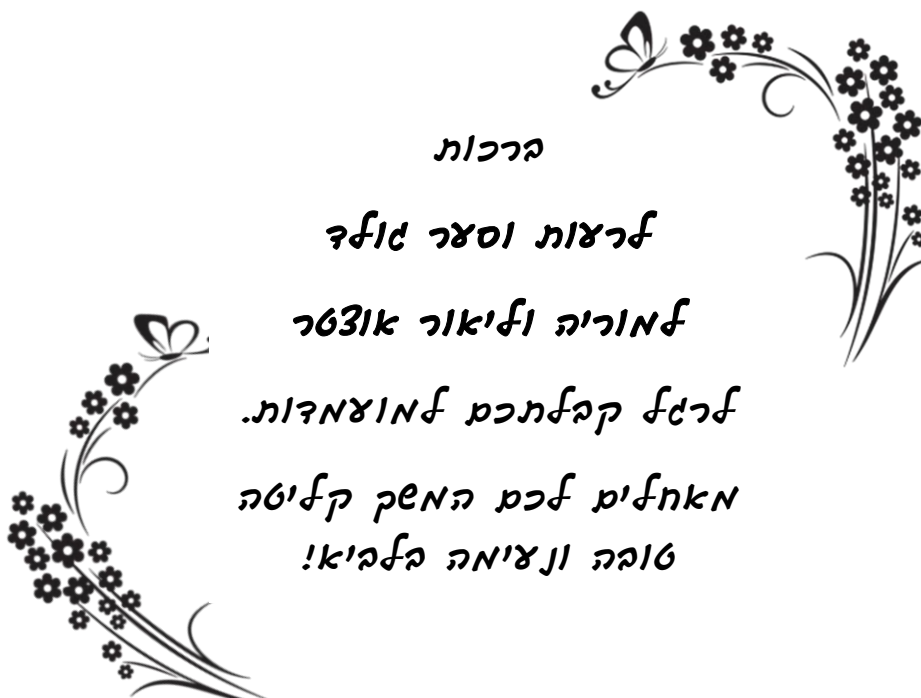 ברכות
לרעות וסער גולד
למוריה וליאור אוצטר
לרגל קבלתכם למועמדות.
מאחלים לכם המשך קליטה
טובה ונעימה בלביא!